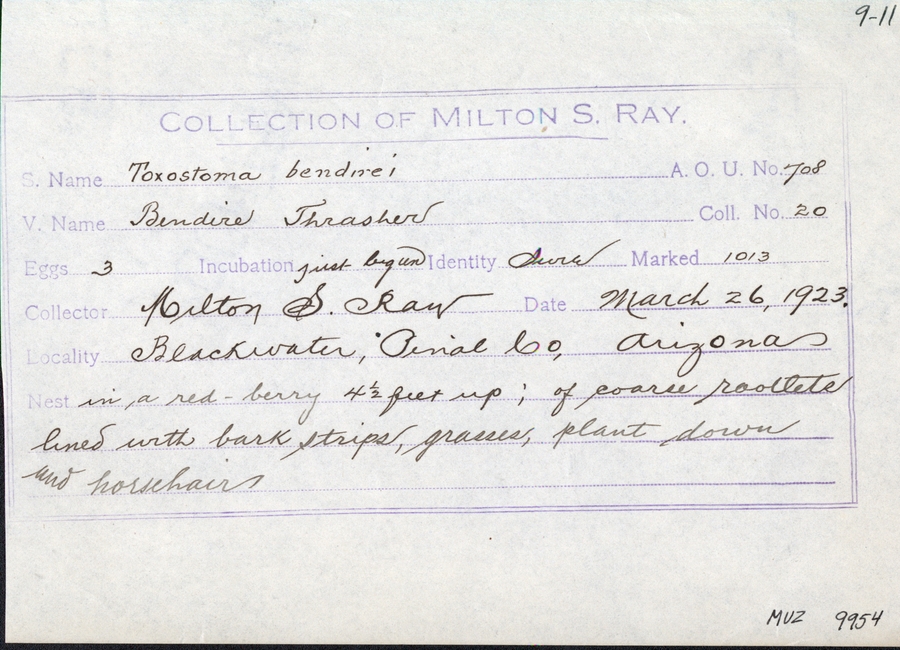 9-11
COLLECTION OF MILTON S. RAY.
S. Name Toxostoma bendirei A. O. U. No. 708
V. Name Bendire Thrasher Coll. No. 20
Eggs 3 Incubation just begun Identity Sure Marked 1013
Collector Milton S. Ray Date March 26, 1923.
Locality Blackwater, Pinal Co, Arizona
Nest in a red-berry 4½ feet up; of coarse rootlets
lined with bark strips, grasses, plant down
and horsehairs
MVZ 9954